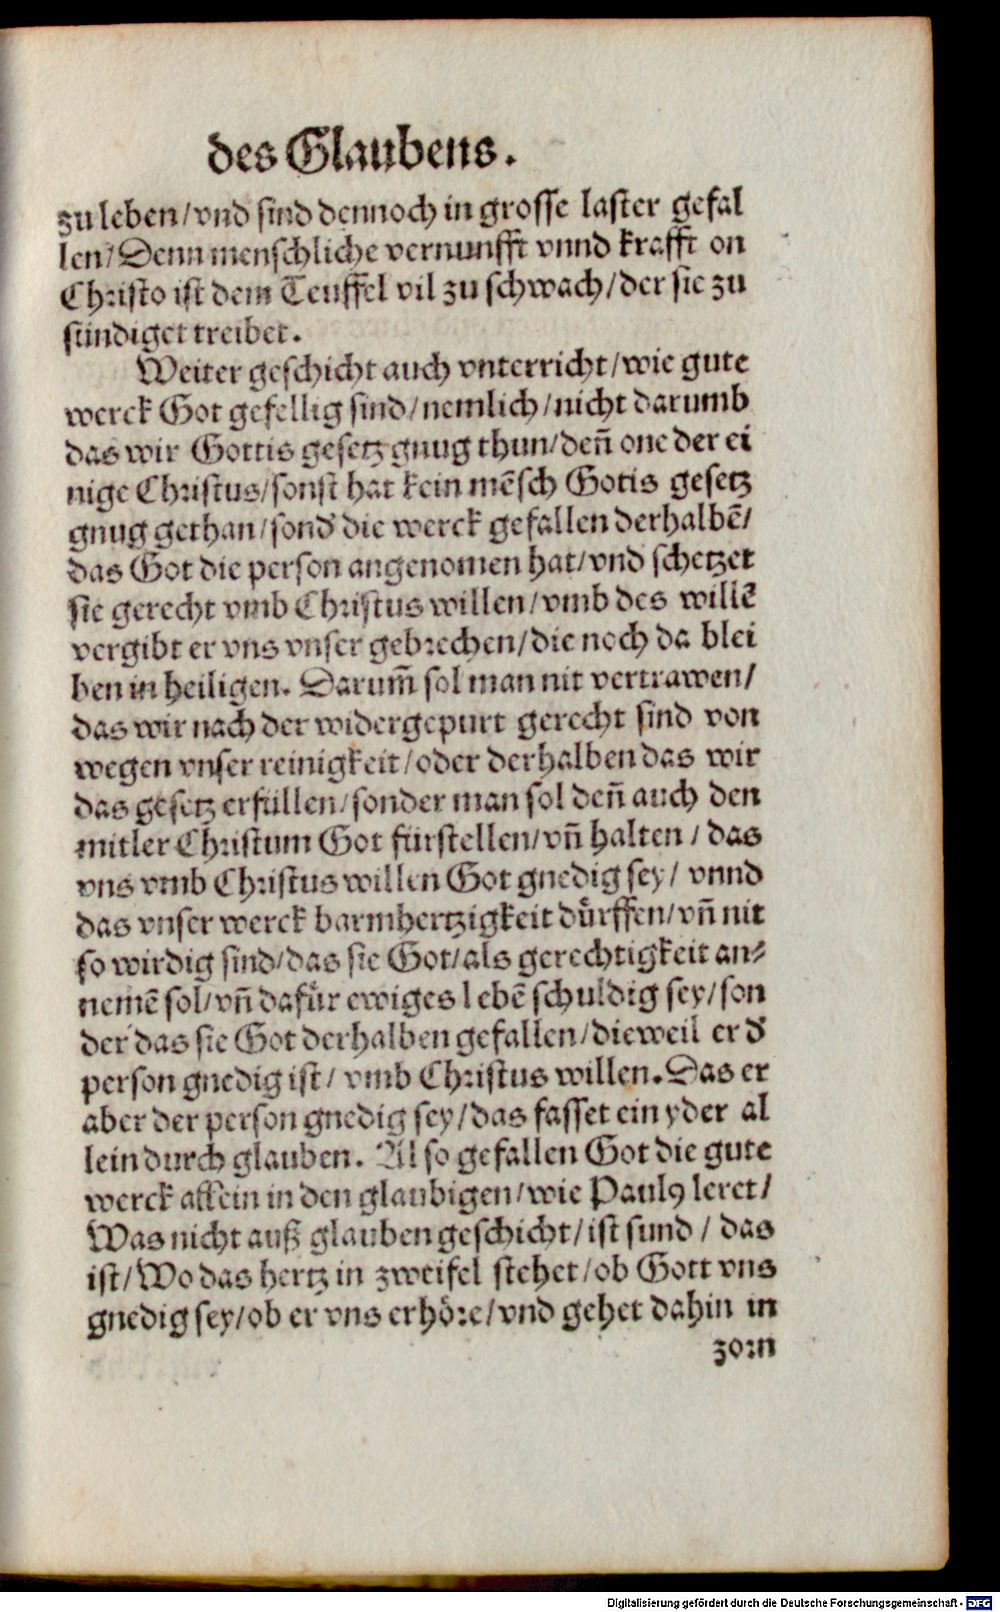 des Glaubens.
zu leben/vnd sind dennoch in grosse laster gefal
len/Denn menschliche vernunfft vnnd krafft on
Christo ist dem Teuffel vil zu schwach/der sie zu
sündiget treibet.
Weiter geschicht auch vnterricht/wie gute
werck Got gefellig sind/nemlich/nicht darumb
das wir Gottis gesetz gnug thun/deñ one der ei
nige Christus/sonst hat kein mẽsch Gotis gesetz
gnug gethan/sond̕ die werck gefallen derhalbẽ/
das Got die person angenomen hat/vnd schetzet
sie gerecht vmb Christus willen/vmb des willẽ
vergibt er vns vnser gebrechen/die noch da blei
ben in heiligen. Darum̃ sol man nit vertrawen/
das wir nach der widergepurt gerecht sind von
wegen vnser reinigkeit/oder derhalben das wir
das gesetz erfüllen/sonder man sol deñ auch den
mitler Christum Got fürstellen/vñ halten / das
vns vmb Christus willen Got gnedig sey/ vnnd
das vnser werck barmhertzigkeit dürffen/vñ nit
so wirdig sind/das sie Got/als gerechtigkeit an⸗
nemẽ sol/vñ dafür ewiges lebẽ schuldig sey/son
der das sie Got derhalben gefallen/dieweil er d̕
person gnedig ist/ vmb Christus willen. Das er
aber der person gnedig sey/das fasset ein yder al
lein durch glauben. Also gefallen Got die gute
werck allein in den glaubigen/wie Paulꝰ leret/
Was nicht auß glauben geschicht/ist sund / das
ist/Wo das hertz in zweifel stehet/ob Gott vns
gnedig sey/ob er vns erhöre/vnd gehet dahin in
zorn
Digitalisierung gefördert durch die Deutsche Forschungsgemeinschaft - DFG